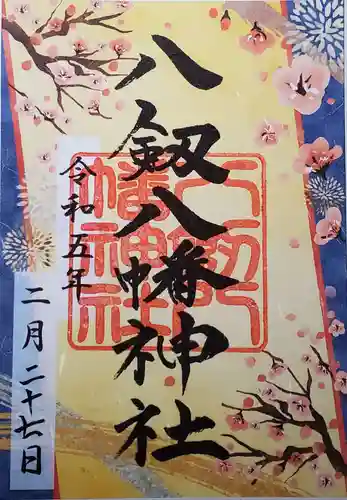 八剱八幡神社
令和五年
二月二十七日
八剱八
幡神社